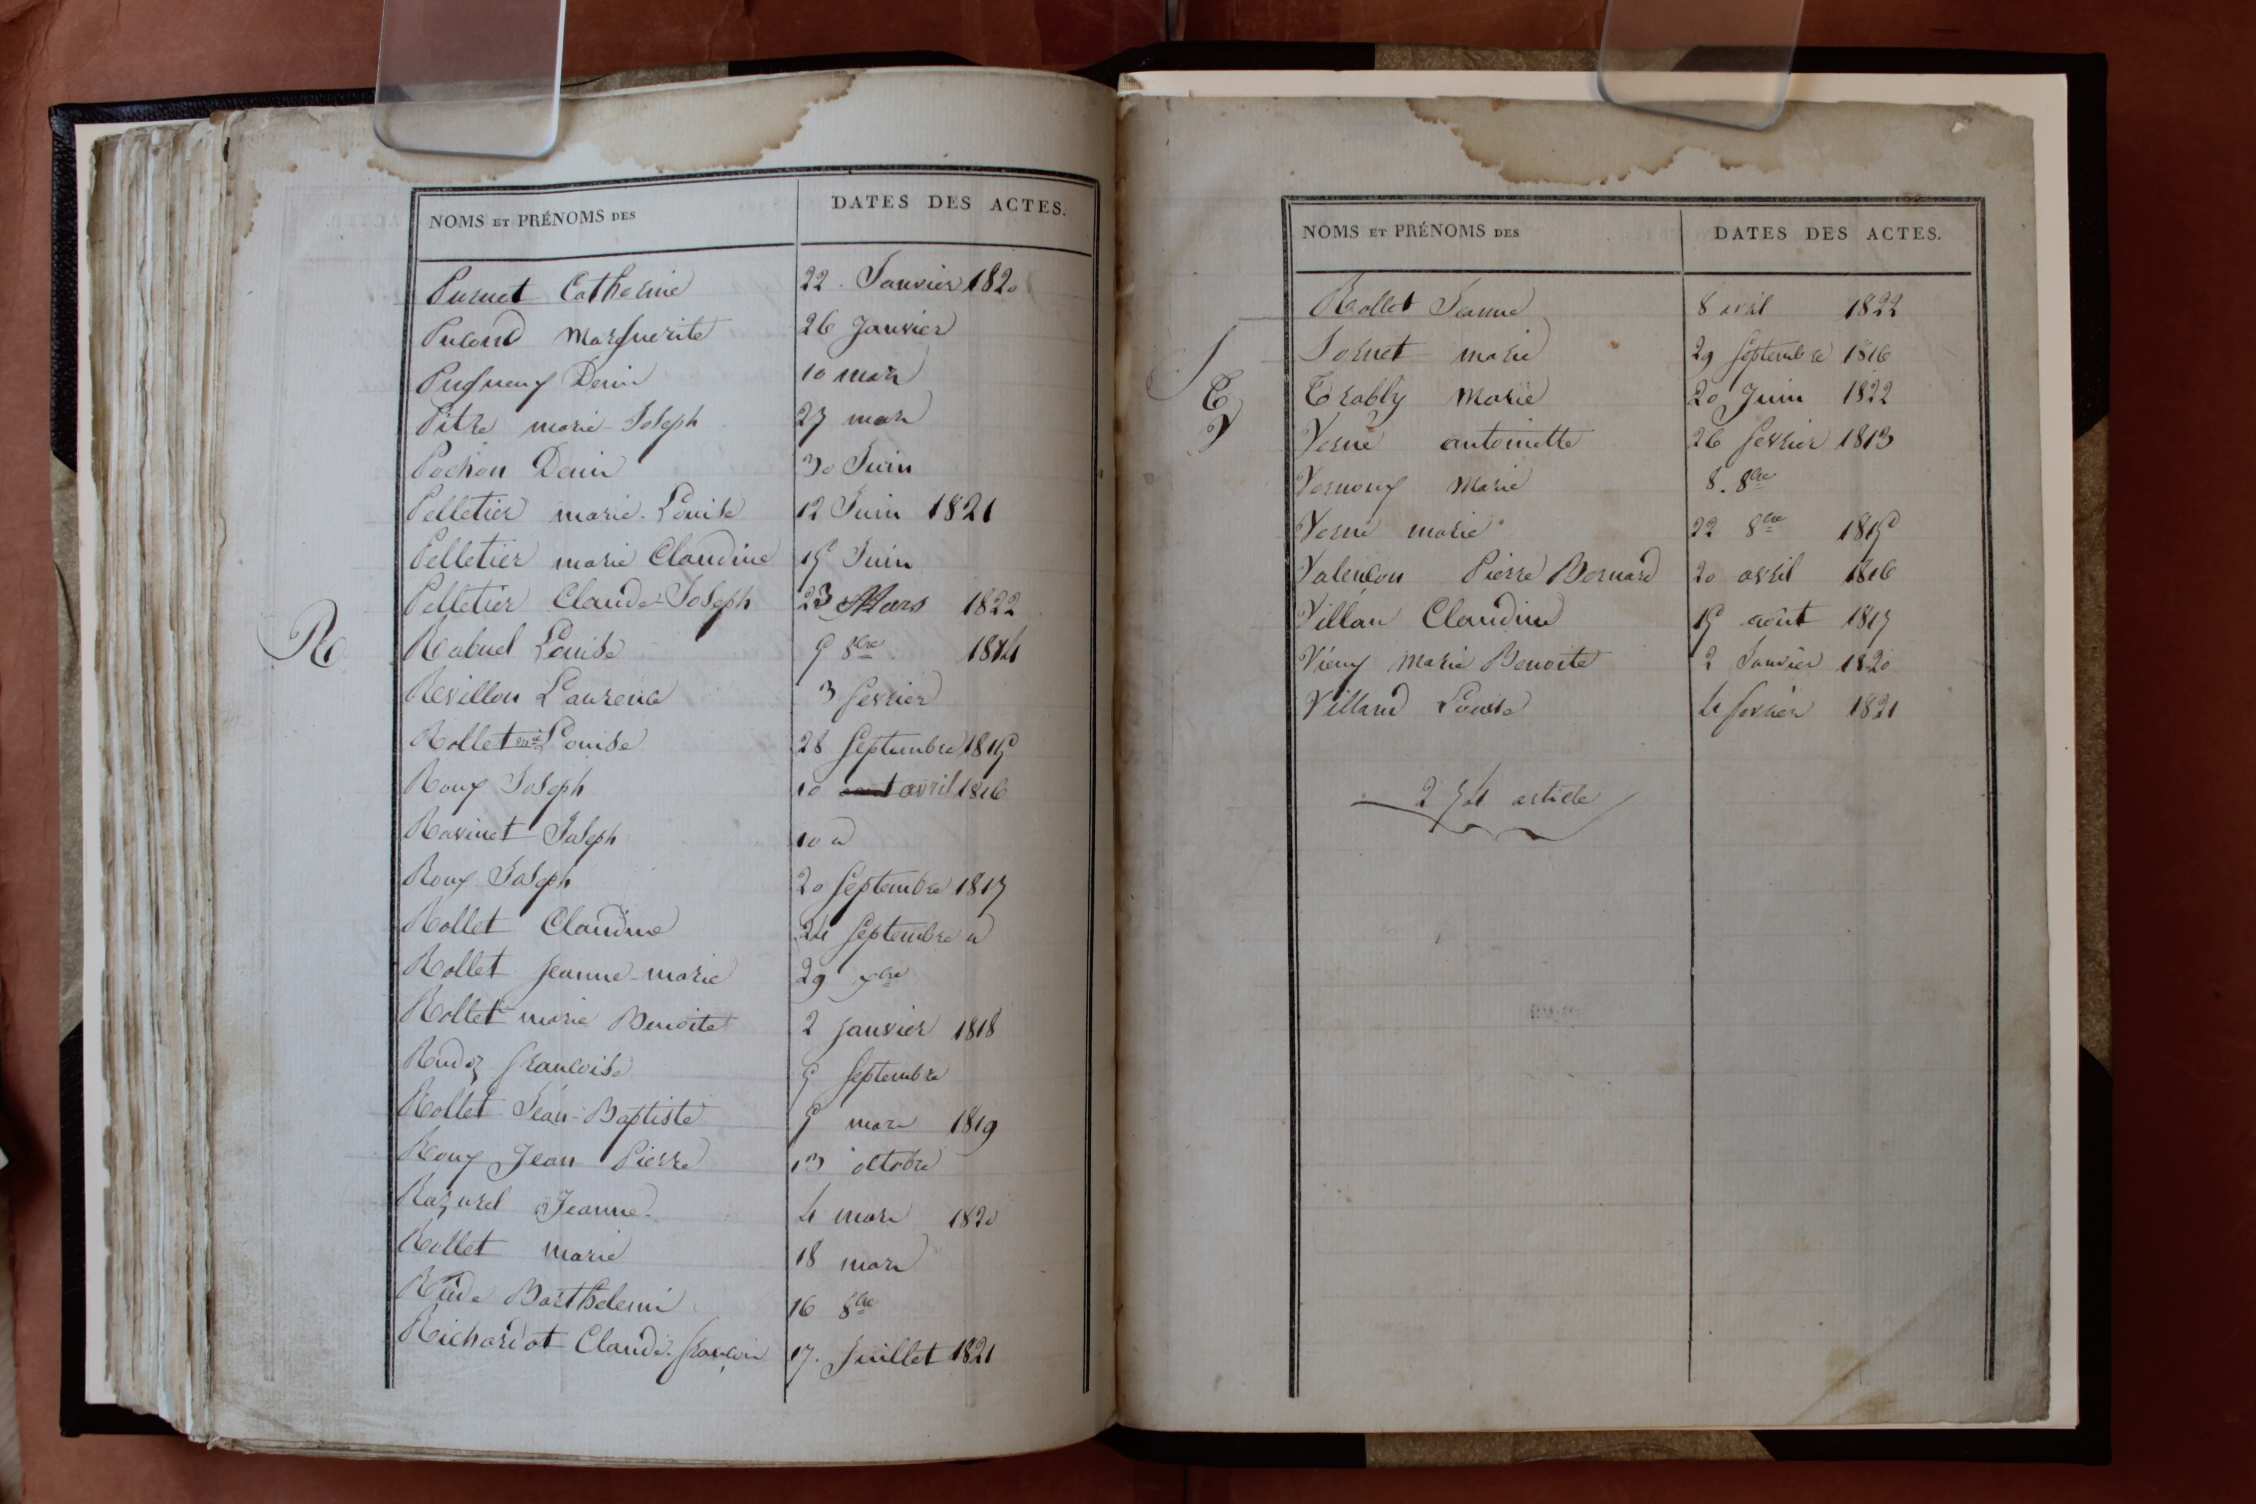 NOMS ET PRÉNOMS DES DATES DES ACTES.
Purnet Catherine 22. Janvier 1820
Marguerite 26 Janvier
Denis 10 mars
Pitre marie-Joseph 27 mars
Pochon Denis 30 Juin
Pelletier marie-Louise 12 Juin 1821
Pelletier marie Claudine 15 Juin
Pelletier Claude-Joseph 23 Mars 1822
R Rabuel Louise 5 8bre 1814
Revillon Laurence 3 fevrier
Rollet Louise 28 Septembre 1815
Roux Joseph 10 avril 1816
Ravinet Joseph 10 d
Roux Joseph 20 Septembre 1817
Rollet Claudine 24 Septembre d
Rollet Jeanne-marie 29 7bre
Rollet marie Benoite 2 Janvier 1818
Rudoz francoise 5 Septembre
Rollet Jean-Baptiste 5 mars 1819
Roux Jean Pierre 13 octobre
Razurel Jeanne 4 mars 1820
Rollet marie 18 mars
Rude Barthelemi 16 8bre
Richardot Claude-françois 17. Juillet 1821
NOMS ET PRÉNOMS DES DATES DES ACTES.
Rollet Jeanne 8 avril 1822
S Sornet marie 29 Septembre 1816
T Trably Marie 20 Juin 1822
V Verne antoinette 26 fevrier 1813
Vernoux Marie 8. 8bre
Verne marie 22 8bre 1815
Valencon Pierre Bernard 20 avril 1816
Villan Claudine 15 août 1817
Vieux Marie Benoite 2 Janvier 1820
Villand Louise 4 fevrier 1821
254 article